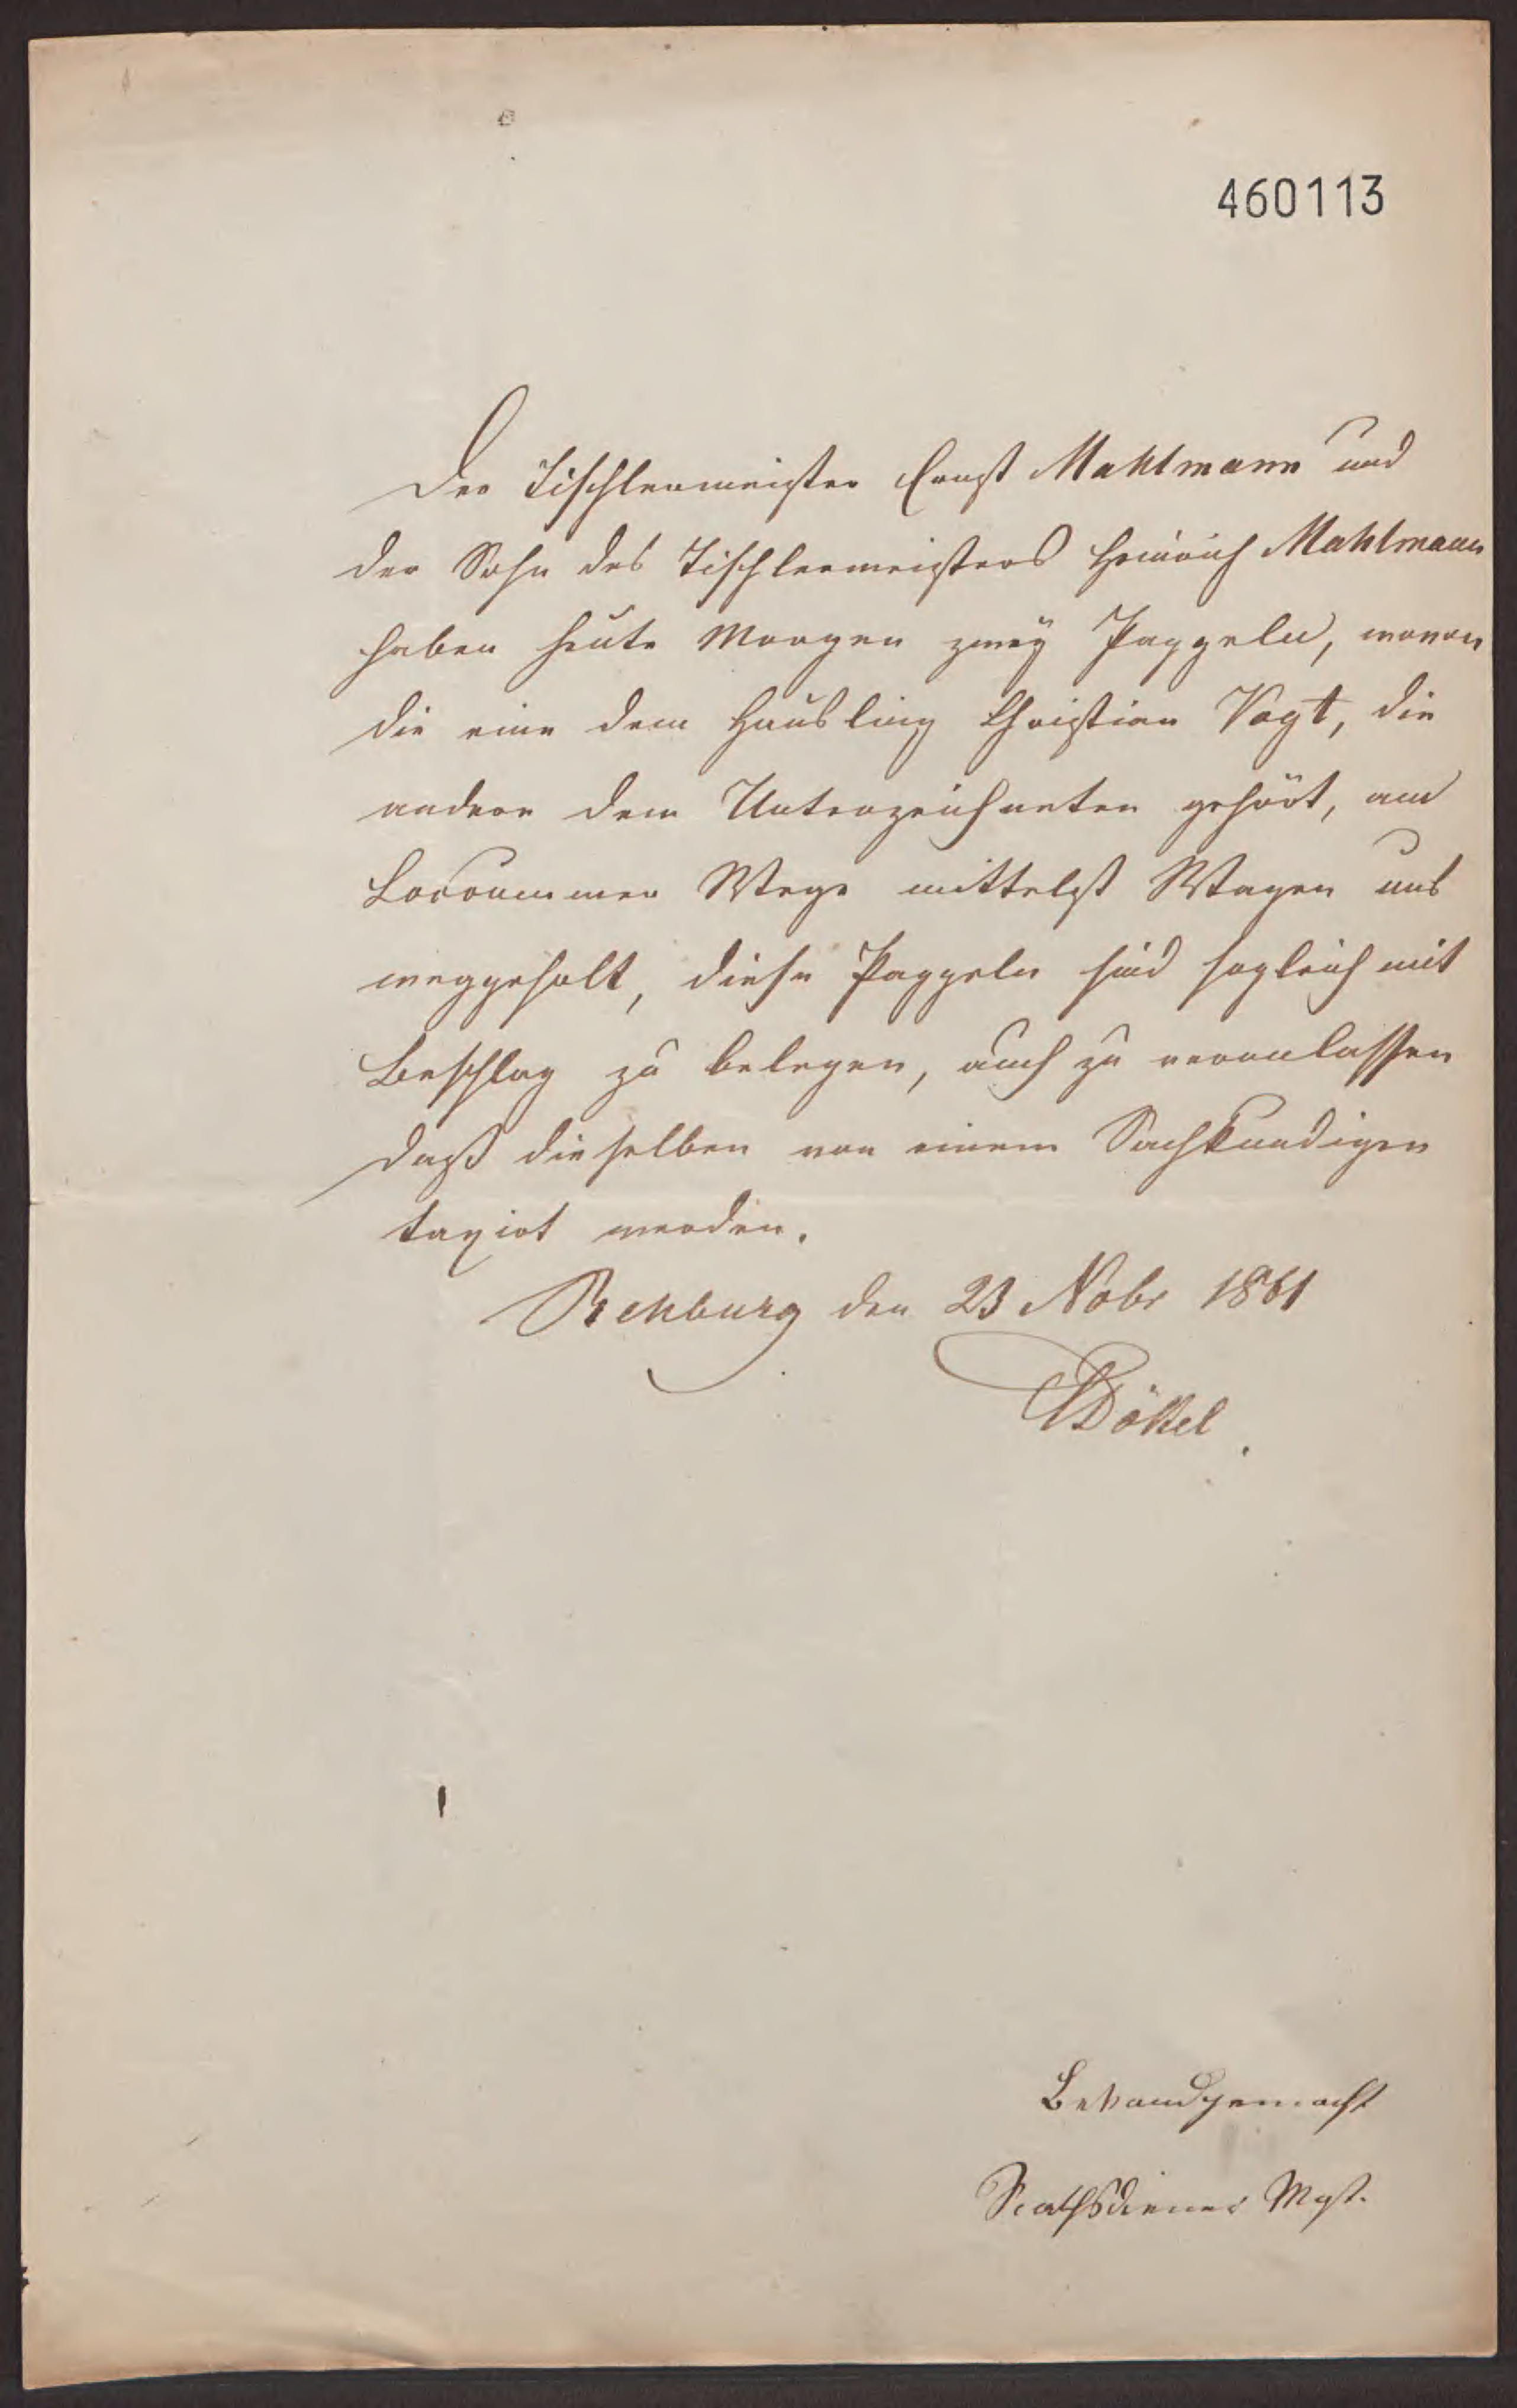 460113
Der Tischlermeister Ernst Mahlmann und
der Sohn des Tischlermeisters Heinrich Mahlmann
haben heute Morgen zweÿ Pappeln, wovon
die eine dem Häusling Christian Vogt, die
andere dem Unterzeichneten gehört, am
Loccummer Wege mittelst Wagen
weggeholt, diese Pappeln sind sogleich mit
Beschlag zu belegen, auch zu veranlassen
daß dieselben von einem Sachkundigen
taxirt werden.
Rehburg den 23 Nobr 1861
Dökel.
Bekandgemacht
Rathsdiener